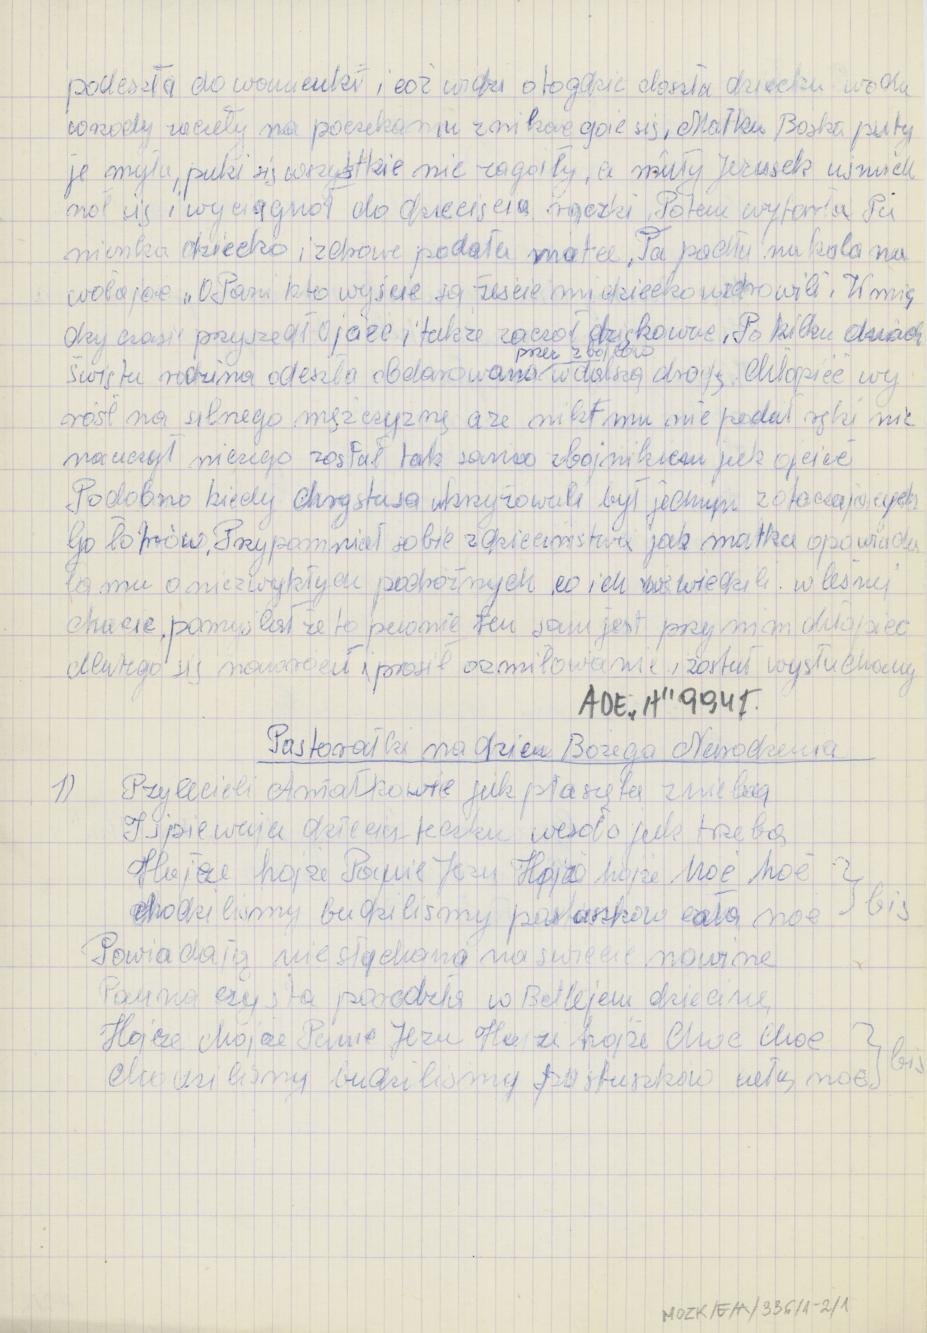 podeszła do wanienki i cóż widzi otogdzie doszła dziecku woda
wrzody zaczęły na poczekaniu znikać goić się, Matka Boska puty
je myła, puki się wszystkie nie zagoiły, a miły Jezusek uśmiech
noł się i wyciągnoł do dziecięcia rączki, Potem wytarła Pa
nienka dziecko i zdrowe podała matce, Ta padła na kolana
wołając „O Pani kto wyście są żeście mi dziecko uzdrowili. W mię
dzy czasie przyszedł Ojciec, i także zaczoł dziękować, Po kilku dniach
przez zbójców
święta rodzina odeszła obdarowana w dalszą drogę. Chłopieć wy
rósł na silnego mężczyznę aze nikt mu nie podał ręki nie
nauczył niczego został tak samo zbójnikiem jak ojcieć
Podobno kiedy chrystusa ukrzyżowali był jednym z otaczających
Go łotrów, Przypamniał sobie z dzieciństwa jak matka opowiada
ła mu o niezwykłych podróżnych co ich nawiedzili. w leśnej
chacie, pomyslał że to pewnie ten sam jest przy nim chłopiec
dlatego się nawrócił i prosił o zmiłowanie, i został wysłuchany
ADE „H" 994 I.
Pastorałki na dzień Bożego Narodzenia
1) Przylecieli Aniałkowie jak ptaszęta z nieba
I śpiewają dzieciąteczku wesoło jak trzeba
Hojże hojże Panie Jezu Hojże hojże hoć hoć } bis
chodziliśmy budziliśmy pastuszków całą noc
Powiadają niesłychaną na świecie nowinę
Panna czysta porodziła w Betlejem dziecinę
Hojże hojże Panie Jezu Hojże hojże Choć Choć } bis
Chodziliśmy budziliśmy pastuszków całą noc
MOZK/E/A/336/1-2/1